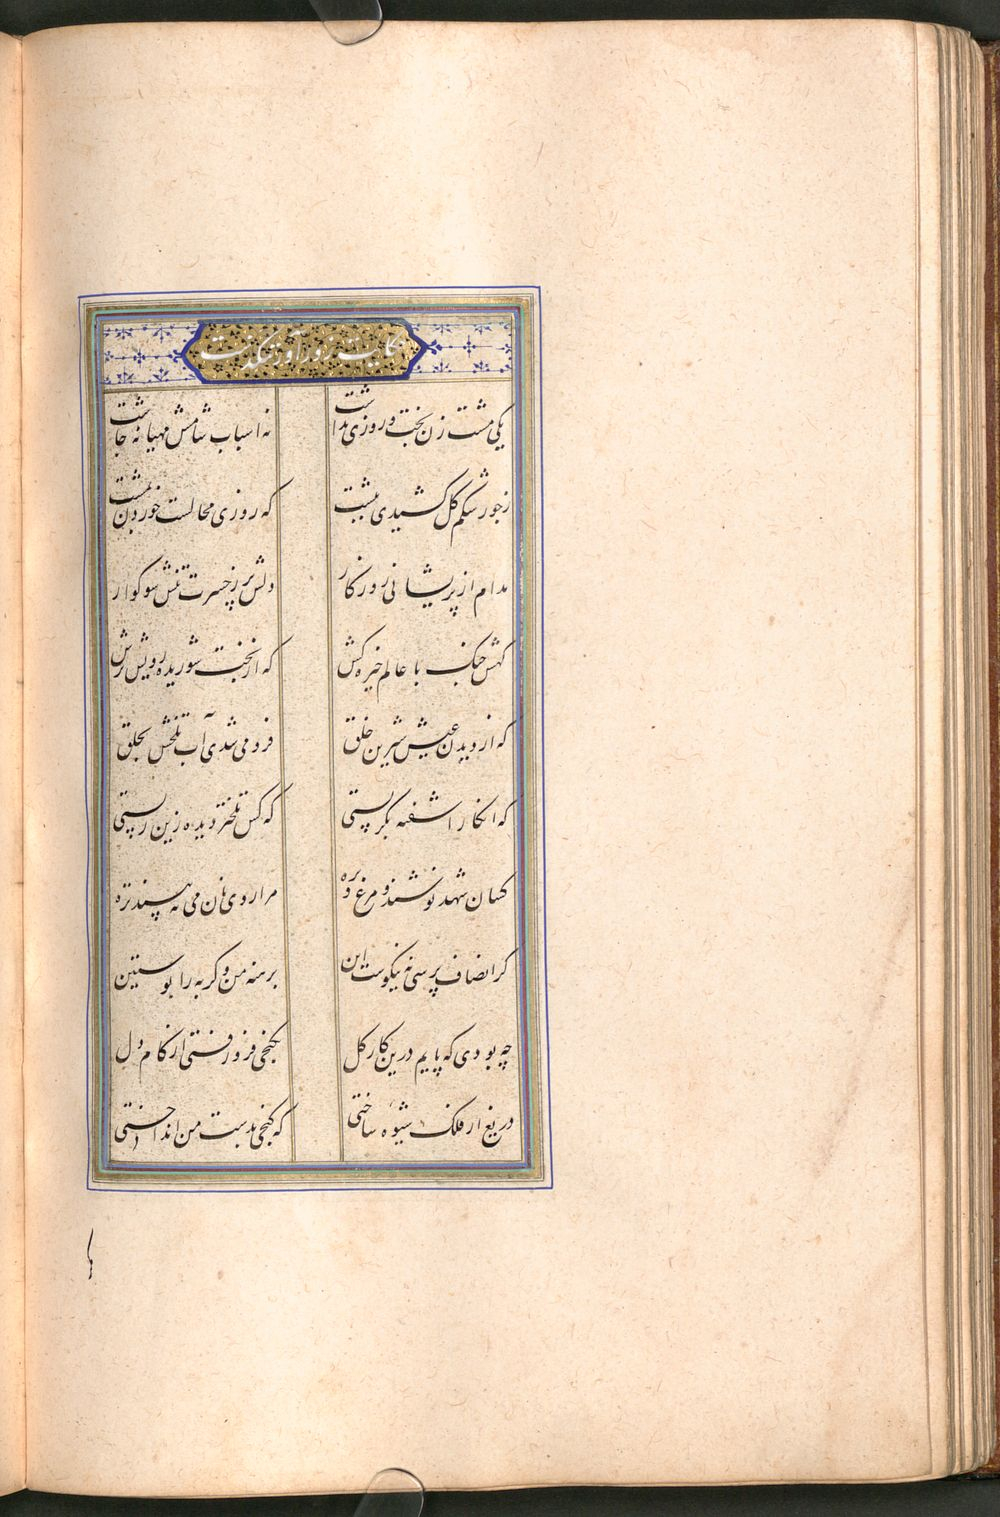 حکایت زورآور تنگدست
یکی مشت زن بخت و روزی نداشت نه اسباب شامش مهیا نه چاشت
ز جور شکم گل کشیدی بپشت که روزی محالست خوردن بمشت
مدام از پریشانی روزکار دلش پر ز حسرت تنش سوکوار
کهش جنک با عالم خیره کش که از بخت شوریده رویش ترش
که از دیدن عیش شیرین خلق فرو می شدی آب تلخش بحلق
که از کار اشفته بکریستی که کس تلختر دیده زین زیستی
کسان شهد نوشند و مرغ و بره مرا روی نان می نه بیند تره
کر انصاف پرسی نه نیکوست این برهنه من و کربه را پوستین
چه بودی که پایم درین کار کل بکنجی فرو رفتی از کام دل
دریغ ار فلک شیوه ساختی که کنجی بدست من انداختی